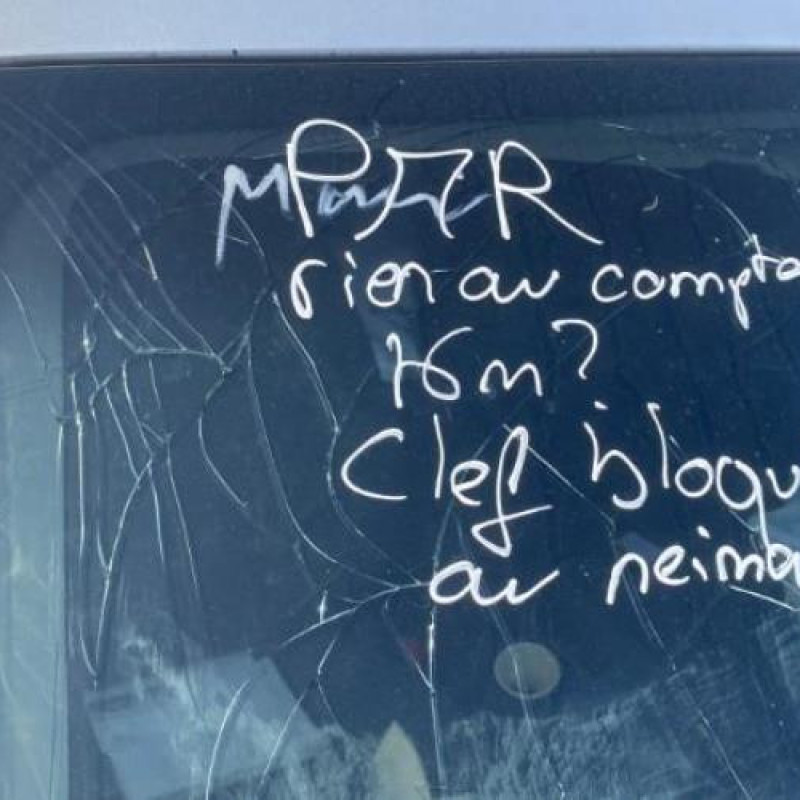 rien au compte
Km?
Clef bloqu
au neima